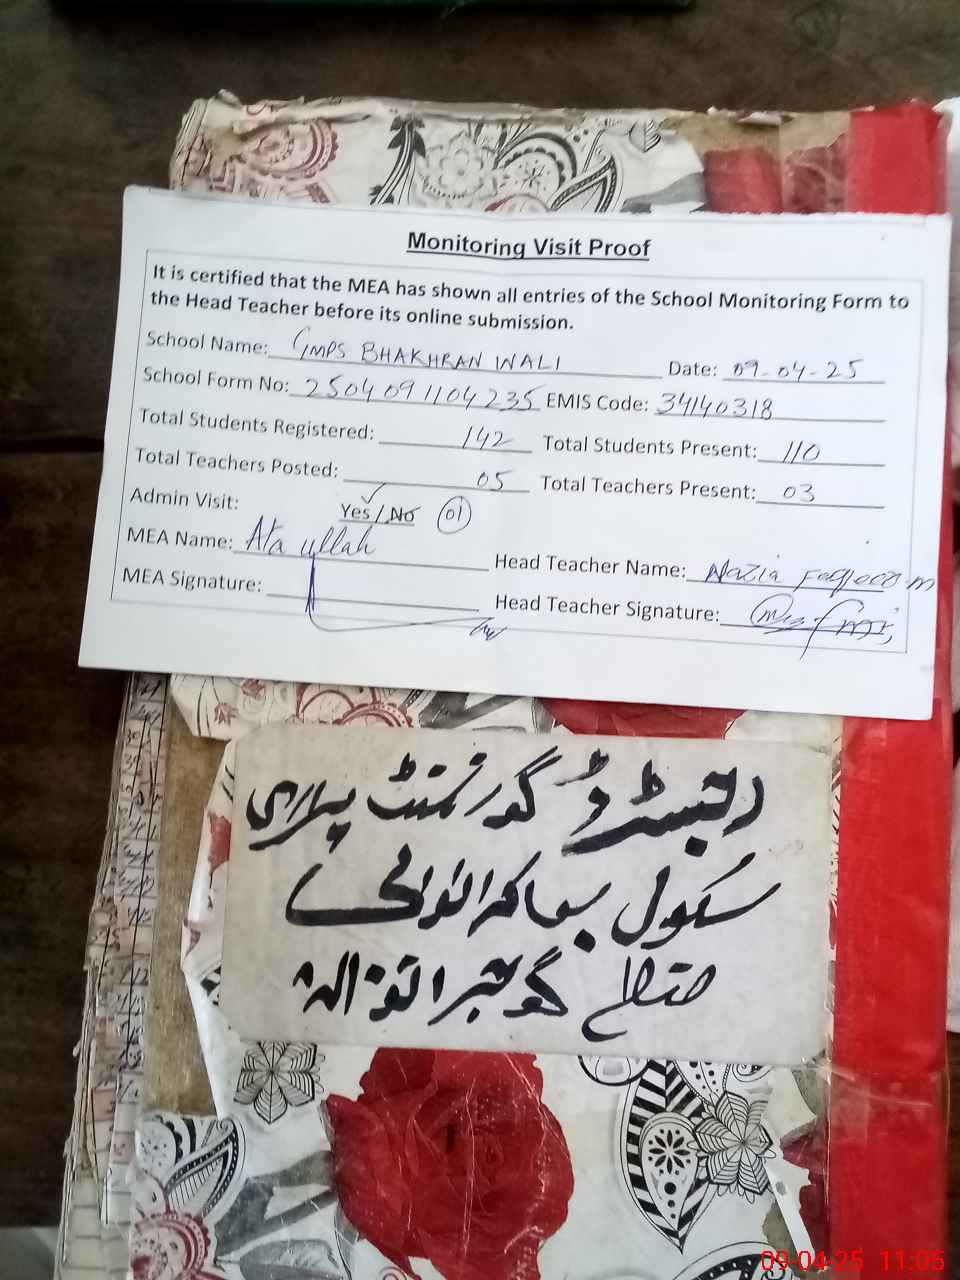 Monitoring Visit Proof
It is certified that the MEA has shown all entries of the School Monitoring Form to
the Head Teacher before its online submission.
School Name: GMPS BHAKHRAN WALI Date: 09-04-25
School Form No: 2504091104235 EMIS Code: 34140318
Total Students Registered: 142 Total Students Present: 110
Total Teachers Posted: 05 Total Teachers Present: 03
Admin Visit: Yes / No 01
MEA Name: Ata ullah Head Teacher Name: Nazia
MEA Signature: Head Teacher Signature:
گورنمنٹ پرائمری
سکول بھاکھرانوالی
ضلع گوجرانوالہ
09-04-25 11:05